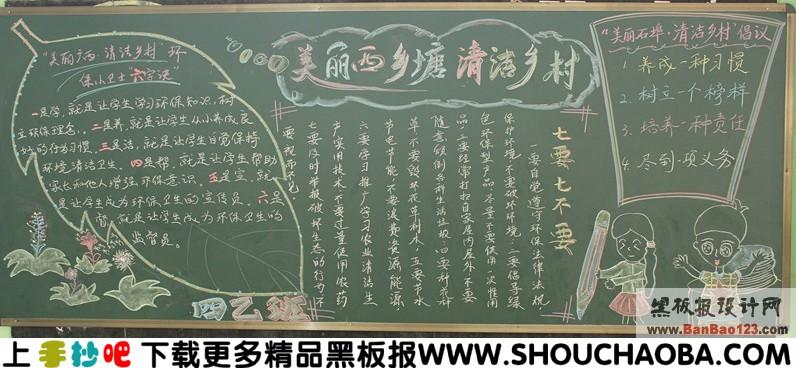 "美丽广西·清洁乡村"环
保小卫士"六字诀"
一是学,就是让学生学习环保知识,树
立环保理念。二是养,就是让学生从小养成良
好的行为习惯。三是洁,就是让学生自觉保持
环境清洁卫生。四是帮,就是让学生帮助
家长和他人增强环保意识。五是宣,就
是让学生成为环保卫生的宣传员。六是
督,就是让学生成为环保卫生的
监督员。
四乙班
美丽西乡塘 清洁乡村
七要七不要
一要自觉遵守环保法律法规,
保护环境,不要破坏环境;二要倡导绿
色环保型产品,尽量不要使用一次性用
品;三要经常打扫自家居内屋外,不要
随意倾倒各种生活垃圾;四要种花种
草,不要毁坏花草树木;五要节水
节电节能,不要浪费资源能源
六要学习推广学习农业清洁生
产实用技术,不要过量使用农药
七要及时举报破坏生态的行为,不
要视而不见
"美丽石埠·清洁乡村"倡议
1. 养成一种习惯
2. 树立一个榜样
3. 培养一种责任
4. 尽到一项义务
黑板报设计网
www.BanBao123.com
上 手抄吧 下载更多精品黑板报WWW.SHOUCHAOBA.COM